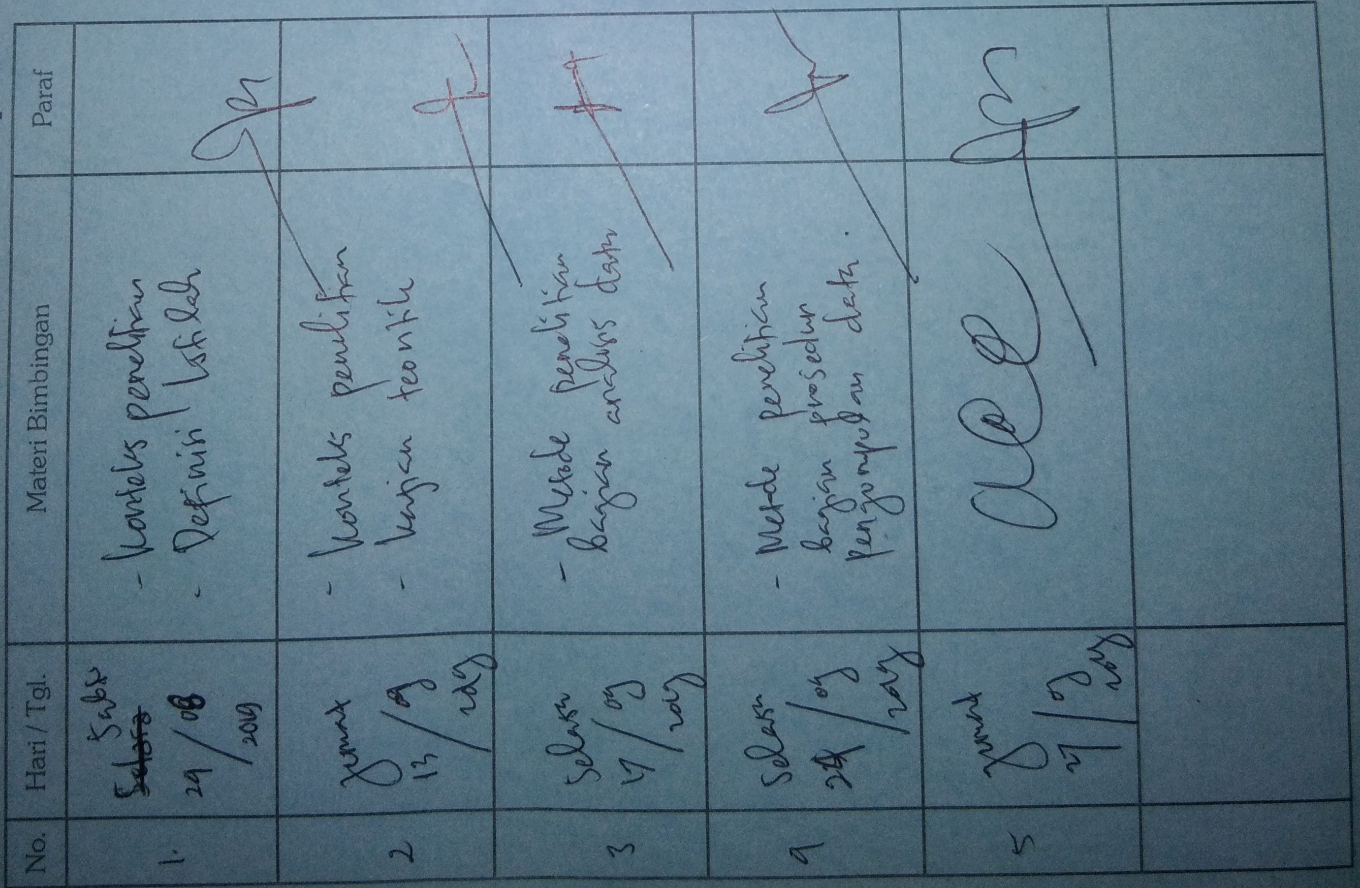 No. Hari / Tgl. Materi Bimbingan Paraf
1. Sabtu
24 / 08
2019
- Konteks penelitian
- Definisi Istilah
2 Jumat
13 / 09
2019
- Konteks penelitian
- Kajian teoritik
3 Selasa
17 / 09
2019
- Metode penelitian
bagian analisis data
4 Selasa
24 / 09
2019
- Metode penelitian
bagian prosedur
pengumpulan data.
5 Jumat
27 / 09
2019
acc